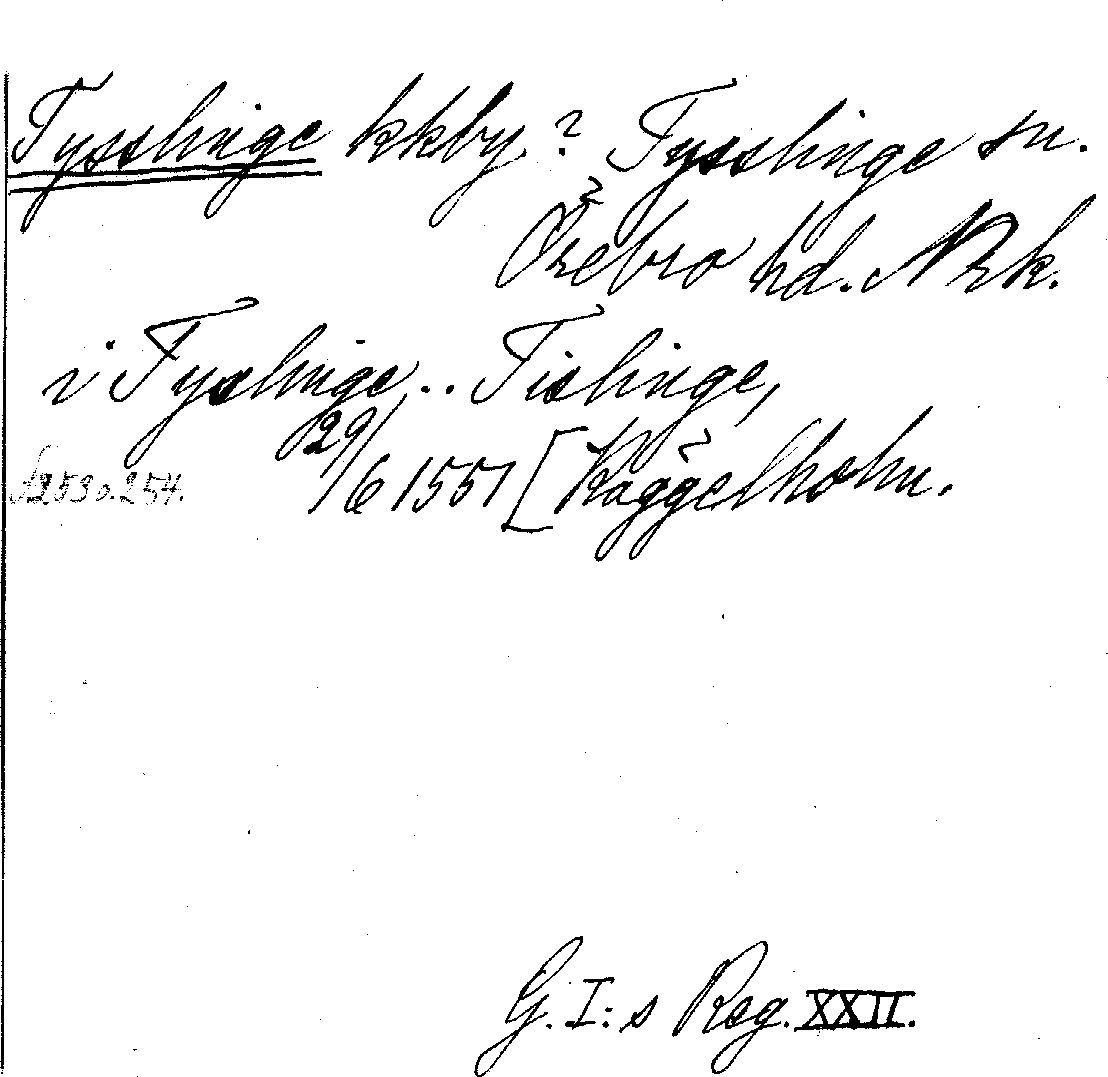 Tysslinge kkby? Tysslinge sn.
Örebro hd. Nrk.
i Tyslinge.. Tislinge,
29/6 1551 [Käggelholm.
s. 253 o. 254.
G. I:s Reg. XXII.